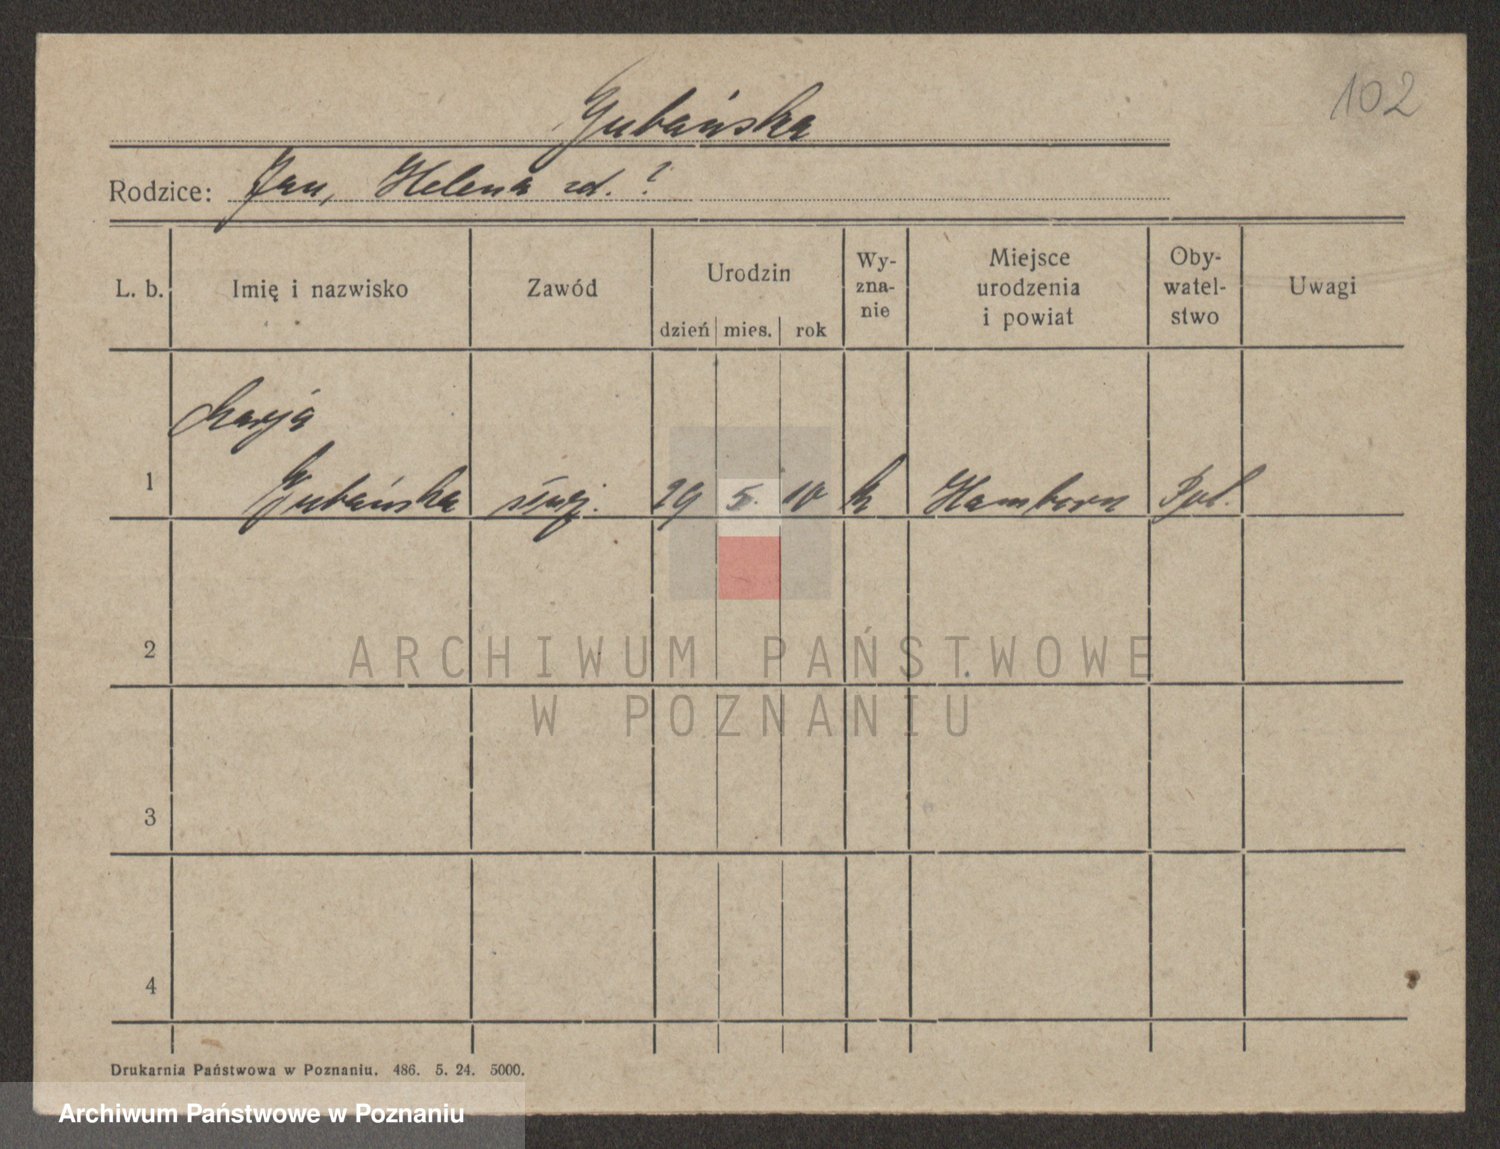 102
Gubańska
Rodzice: Jan, Helena zd. ?
L. b. Imię i nazwisko Zawód Urodzin dzień mies. rok Wy-zna-nie Miejsce urodzenia i powiat Oby-watel-stwo Uwagi
Marja
1 Gubańska służ. 29 5. 10 k Hamborn Pol.
2
ARCHIWUM PAŃSTWOWE
W POZNANIU
3
4
Drukarnia Państwowa w Poznaniu. 486. 5. 24. 5000.
Archiwum Państwowe w Poznaniu